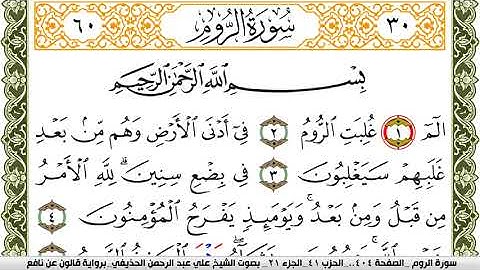 ٦٠ سُورَةُ الرُّومِ ٣٠
بِسْمِ اللَّهِ الرَّحْمَٰنِ الرَّحِيمِ
الٓمٓ ١ غُلِبَتِ الرُّومُ ٢ فِىٓ أَدْنَى الْأَرْضِ وَهُم مِّنۢ بَعْدِ
غَلَبِهِمْ سَيَغْلِبُونَ ٣ فِى بِضْعِ سِنِينَۖ لِلَّهِ الْأَمْرُ
مِن قَبْلُ وَمِنۢ بَعْدُۖ وَيَوْمَئِذٍ يَفْرَحُ الْمُؤْمِنُونَ ٤
سورة الروم _الصفحة ٤٠٤_ الحزب ٤١_الجزء ٢١ _بصوت الشيخ علي عبد الرحمن الحذيفي_برواية قالون عن نافع